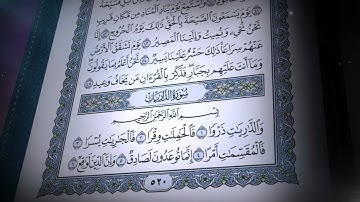 يَوْمَ يَسْمَعُونَ الصَّيْحَةَ بِالْحَقِّ ذَٰلِكَ يَوْمُ الْخُرُوجِ
نَحْنُ نُحْيِي وَنُمِيتُ وَإِلَيْنَا الْمَصِيرُ يَوْمَ تَشَقَّقُ الْأَرْضُ
عَنْهُمْ سِرَاعًا ذَٰلِكَ حَشْرٌ عَلَيْنَا يَسِيرٌ نَحْنُ أَعْلَمُ بِمَا يَقُولُونَ
وَمَا أَنتَ عَلَيْهِم بِجَبَّارٍ فَذَكِّرْ بِالْقُرْآنِ مَن يَخَافُ وَعِيدِ
سُورَةُ الذَّارِيَاتِ
بِسْمِ اللَّهِ الرَّحْمَٰنِ الرَّحِيمِ
وَالذَّارِيَاتِ ذَرْوًا ١ فَالْحَامِلَاتِ وِقْرًا ٢ فَالْجَارِيَاتِ يُسْرًا ٣
فَالْمُقَسِّمَاتِ أَمْرًا ٤ إِنَّمَا تُوعَدُونَ لَصَادِقٌ ٥ وَإِنَّ الدِّينَ لَوَاقِعٌ ٦
٥٢٠